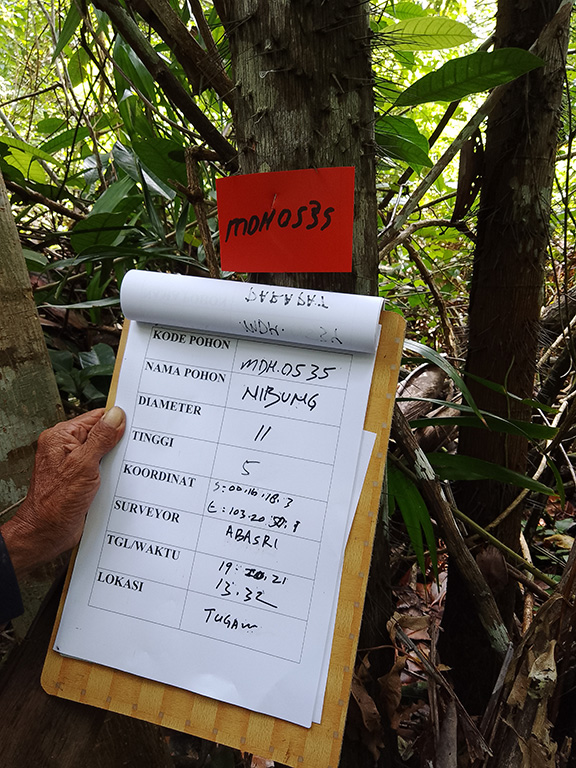 MDH.0535
KODE POHON MDH.0535
NAMA POHON NIBUNG
DIAMETER 11
TINGGI 5
KOORDINAT S:00.16.18.3
E:103.20
SURVEYOR ABASRI
TGL/WAKTU 19. 21
13.32
LOKASI